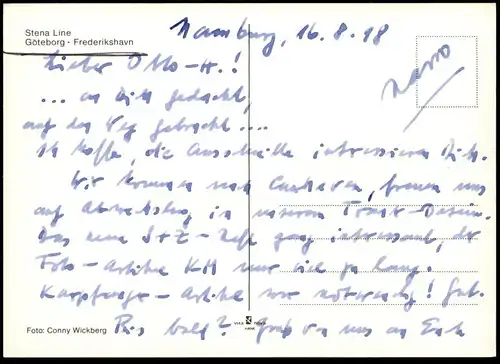 Stena Line
Göteborg - Frederikshavn
Hamburg, 16.8.98
Lieber Otto-H.!
... an Dich gedacht,
auf den Weg gebracht ....
Ich hoffe, die Ausschnitte interessieren Dich.
Wir kommen nach Cuxhaven, freuen uns
auf Abwechslung in unserem
Das neue S+Z-Heft ganz interessant, der
Foto-Artikel KH nur viel zu lang.
Artikel war notwendig! Gut.
Foto: Conny Wickberg
Bis bald? Gruß von uns an Euch